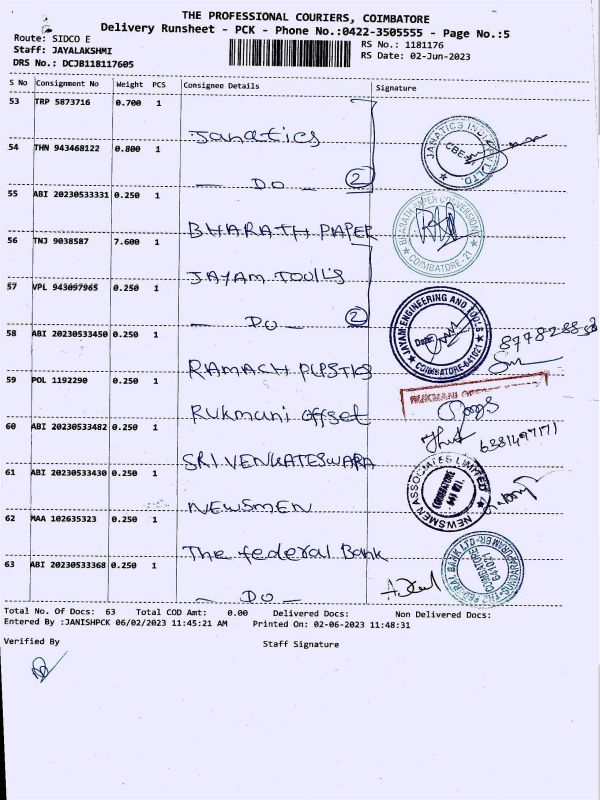 THE PROFESSIONAL COURIERS, COIMBATORE
Delivery Runsheet - PCK - Phone No.:0422-3505555 - Page No.:5
Route: SIDCO E
RS No.: 1181176
Staff: JAYALAKSHMI
RS Date: 02-Jun-2023
DRS No.: DCJB118117605
S No Consignment No Weight PCS Consignee Details Signature
53 TRP 5873716 0.700 1
Janatics
JANATICS INDIA
CBE
54 THN 943468122 0.800 1
— DO — 2
55 ABI 20230533331 0.250 1
BHARATH PAPER
BHARATH PAPER CONVERSIONS
COIMBATORE - 21
56 TNJ 9038587 7.600 1
JAYAM TOOLLS
57 VPL 943097965 0.250 1
— DO — 2
JAYAM ENGINEERING AND TOOLS
Date:
COIMBATORE-641021
58 ABI 20230533450 0.250 1
RAMACH PLSTICS
59 POL 1192290 0.250 1
Rukmani offset
RUKMANI
60 ABI 20230533482 0.250 1
SRI VENKATESWARA
6381497171
61 ABI 20230533430 0.250 1
NEWSMEN
NEWSMEN ASSOCIATES LIMITED
COIMBATORE
641 021
62 MAA 102635323 0.250 1
The federal Bank
63 ABI 20230533368 0.250 1
— DO —
COIMBATORE
641021
Total No. Of Docs: 63 Total COD Amt: 0.00 Delivered Docs: Non Delivered Docs:
Entered By :JANISHPCK 06/02/2023 11:45:21 AM Printed On: 02-06-2023 11:48:31
Verified By Staff Signature